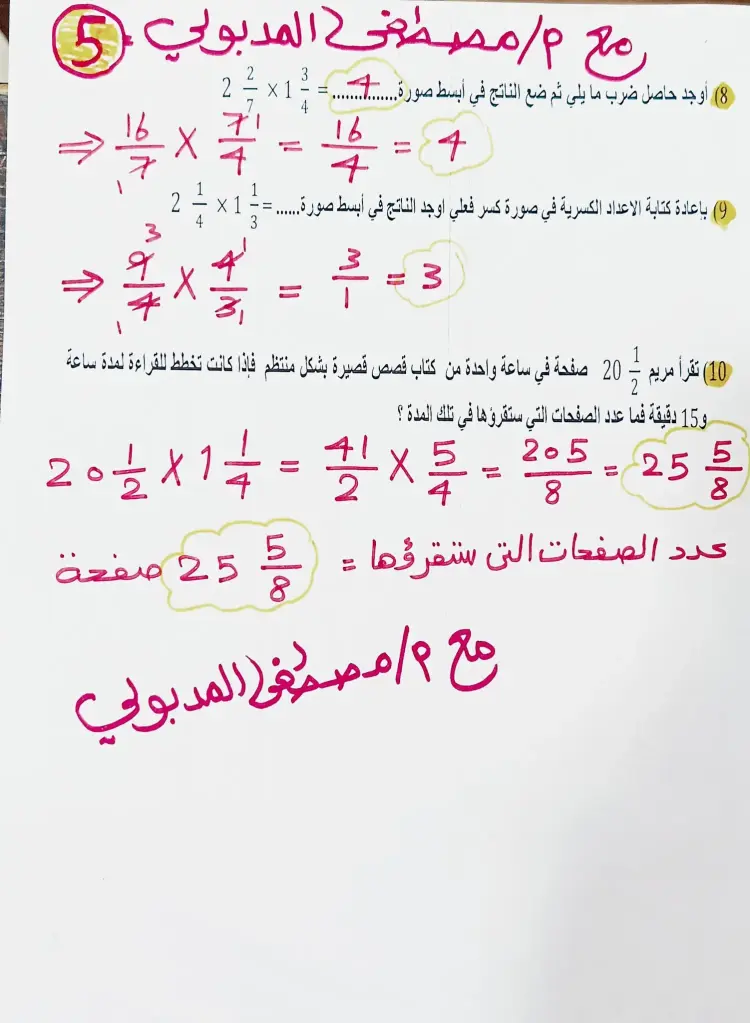 مع م/مصطفى المدبولي. 5
8) أوجد حاصل ضرب ما يلي ثم ضع الناتج في أبسط صورة....4.... = 2 2/7 × 1 3/4
⇒ 16/7 × 7/4 = 16/4 = 4
9) بإعادة كتابة الاعداد الكسرية في صورة كسر فعلي اوجد الناتج في أبسط صورة......= 2 1/4 × 1 1/3
⇒ 9/4 × 4/3 = 3/1 = 3
10) تقرأ مريم 20 1/2 صفحة في ساعة واحدة من كتاب قصص قصيرة بشكل منتظم فإذا كانت تخطط للقراءة لمدة ساعة
و15 دقيقة فما عدد الصفحات التي ستقرؤها في تلك المدة ؟
20 1/2 × 1 1/4 = 41/2 × 5/4 = 205/8 = 25 5/8
عدد الصفحات التى ستقرؤها = 25 5/8 صفحة
مع م/مصطفى المدبولي